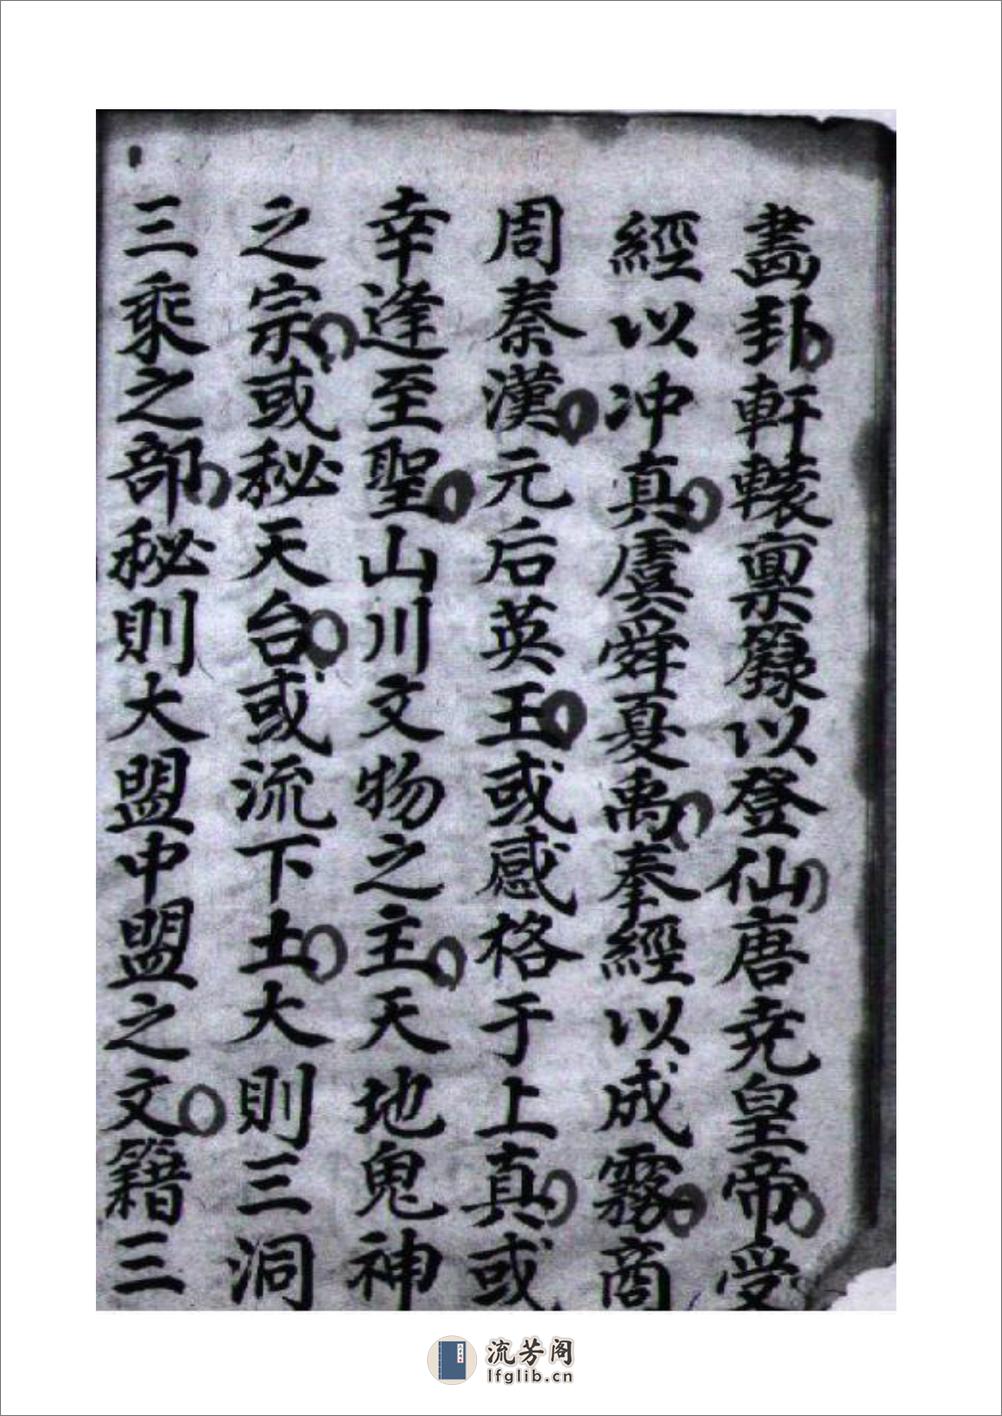 畵卦軒轅禀籙以登仙唐尭皇帝受
經以冲真虞舜夏禹奉經以成霧商
周秦漢元后英王或感格于上真或
幸逢至聖山川文物之主天地鬼神
之宗或秘天台或流下土大則三洞
三乘之部秘則大盟中盟之文籍三
流芳阁
lfglib.cn